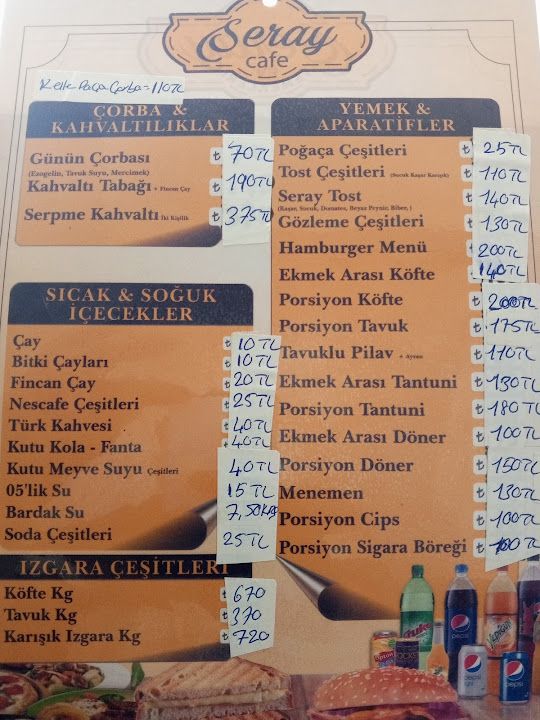 Seray
cafe
Kelle Paça Çorba = 110TL
ÇORBA &
KAHVALTILIKLAR
Günün Çorbası ₺ 70TL
(Ezogelin, Tavuk Suyu, Mercimek)
Kahvaltı Tabağı + Fincan Çay ₺ 190TL
Serpme Kahvaltı İki Kişilik ₺ 375TL
SICAK & SOĞUK
İÇECEKLER
Çay ₺ 10TL
Bitki Çayları ₺ 10TL
Fincan Çay ₺ 20TL
Nescafe Çeşitleri ₺ 25TL
Türk Kahvesi ₺ 40TL
Kutu Kola - Fanta ₺ 40TL
Kutu Meyve Suyu Çeşitleri 40TL
05'lik Su 15TL
Bardak Su 7,50
Soda Çeşitleri 25TL
IZGARA ÇEŞİTLERİ
Köfte Kg ₺ 670
Tavuk Kg ₺ 370
Karışık Izgara Kg ₺ 720
YEMEK &
APARATİFLER
Poğaça Çeşitleri ₺ 25TL
Tost Çeşitleri (Sucuk Kaşar Karışık) ₺ 110TL
Seray Tost ₺ 140TL
(Kaşar, Sucuk, Domates, Beyaz Peynir, Biber, )
Gözleme Çeşitleri ₺ 130TL
Hamburger Menü 200TL
Ekmek Arası Köfte ₺ 140TL
Porsiyon Köfte ₺ 200TL
Porsiyon Tavuk ₺ 175TL
Tavuklu Pilav + Ayran ₺ 110TL
Ekmek Arası Tantuni ₺ 130TL
Porsiyon Tantuni ₺ 180TL
Ekmek Arası Döner ₺ 100TL
Porsiyon Döner ₺ 150TL
Menemen ₺ 130TL
Porsiyon Cips ₺ 100TL
Porsiyon Sigara Böreği ₺ 100TL
pepsi
pepsi
pepsi